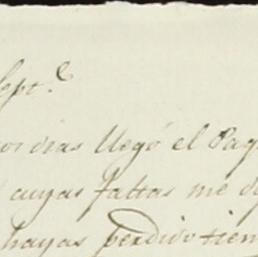 Sept.e
dias llegó el Paq
cuyas faltas me d
hayas perdido tiem